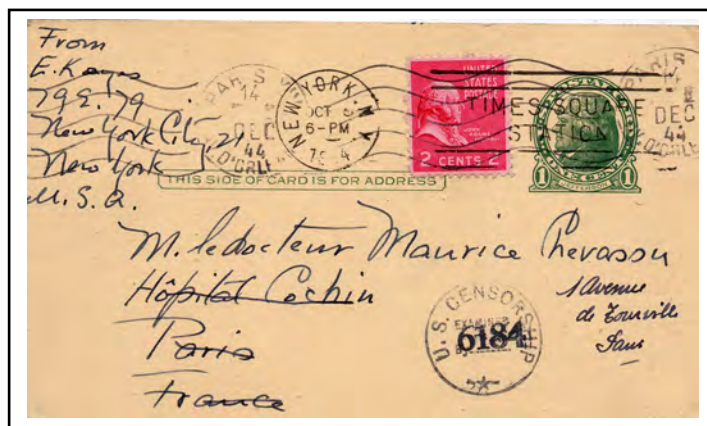 From
E. Keyes
79 E. 79
New York City, 21
New York
U. S. A.
PARIS
14
DEC
44
NEW YORK, N.Y.
OCT
6-PM
UNITED
STATES
POSTAGE
JOHN
ADAMS
2 CENTS 2
TIMES SQUARE
STATION
1 JEFFERSON 1
PARIS
14
DEC
44
THIS SIDE OF CARD IS FOR ADDRESS
M. le docteur Maurice Chevassu
Hôpital Cochin
Paris
France
1 Avenue
de Tourville
Paris
U. S. CENSORSHIP
EXAMINED
By
6184